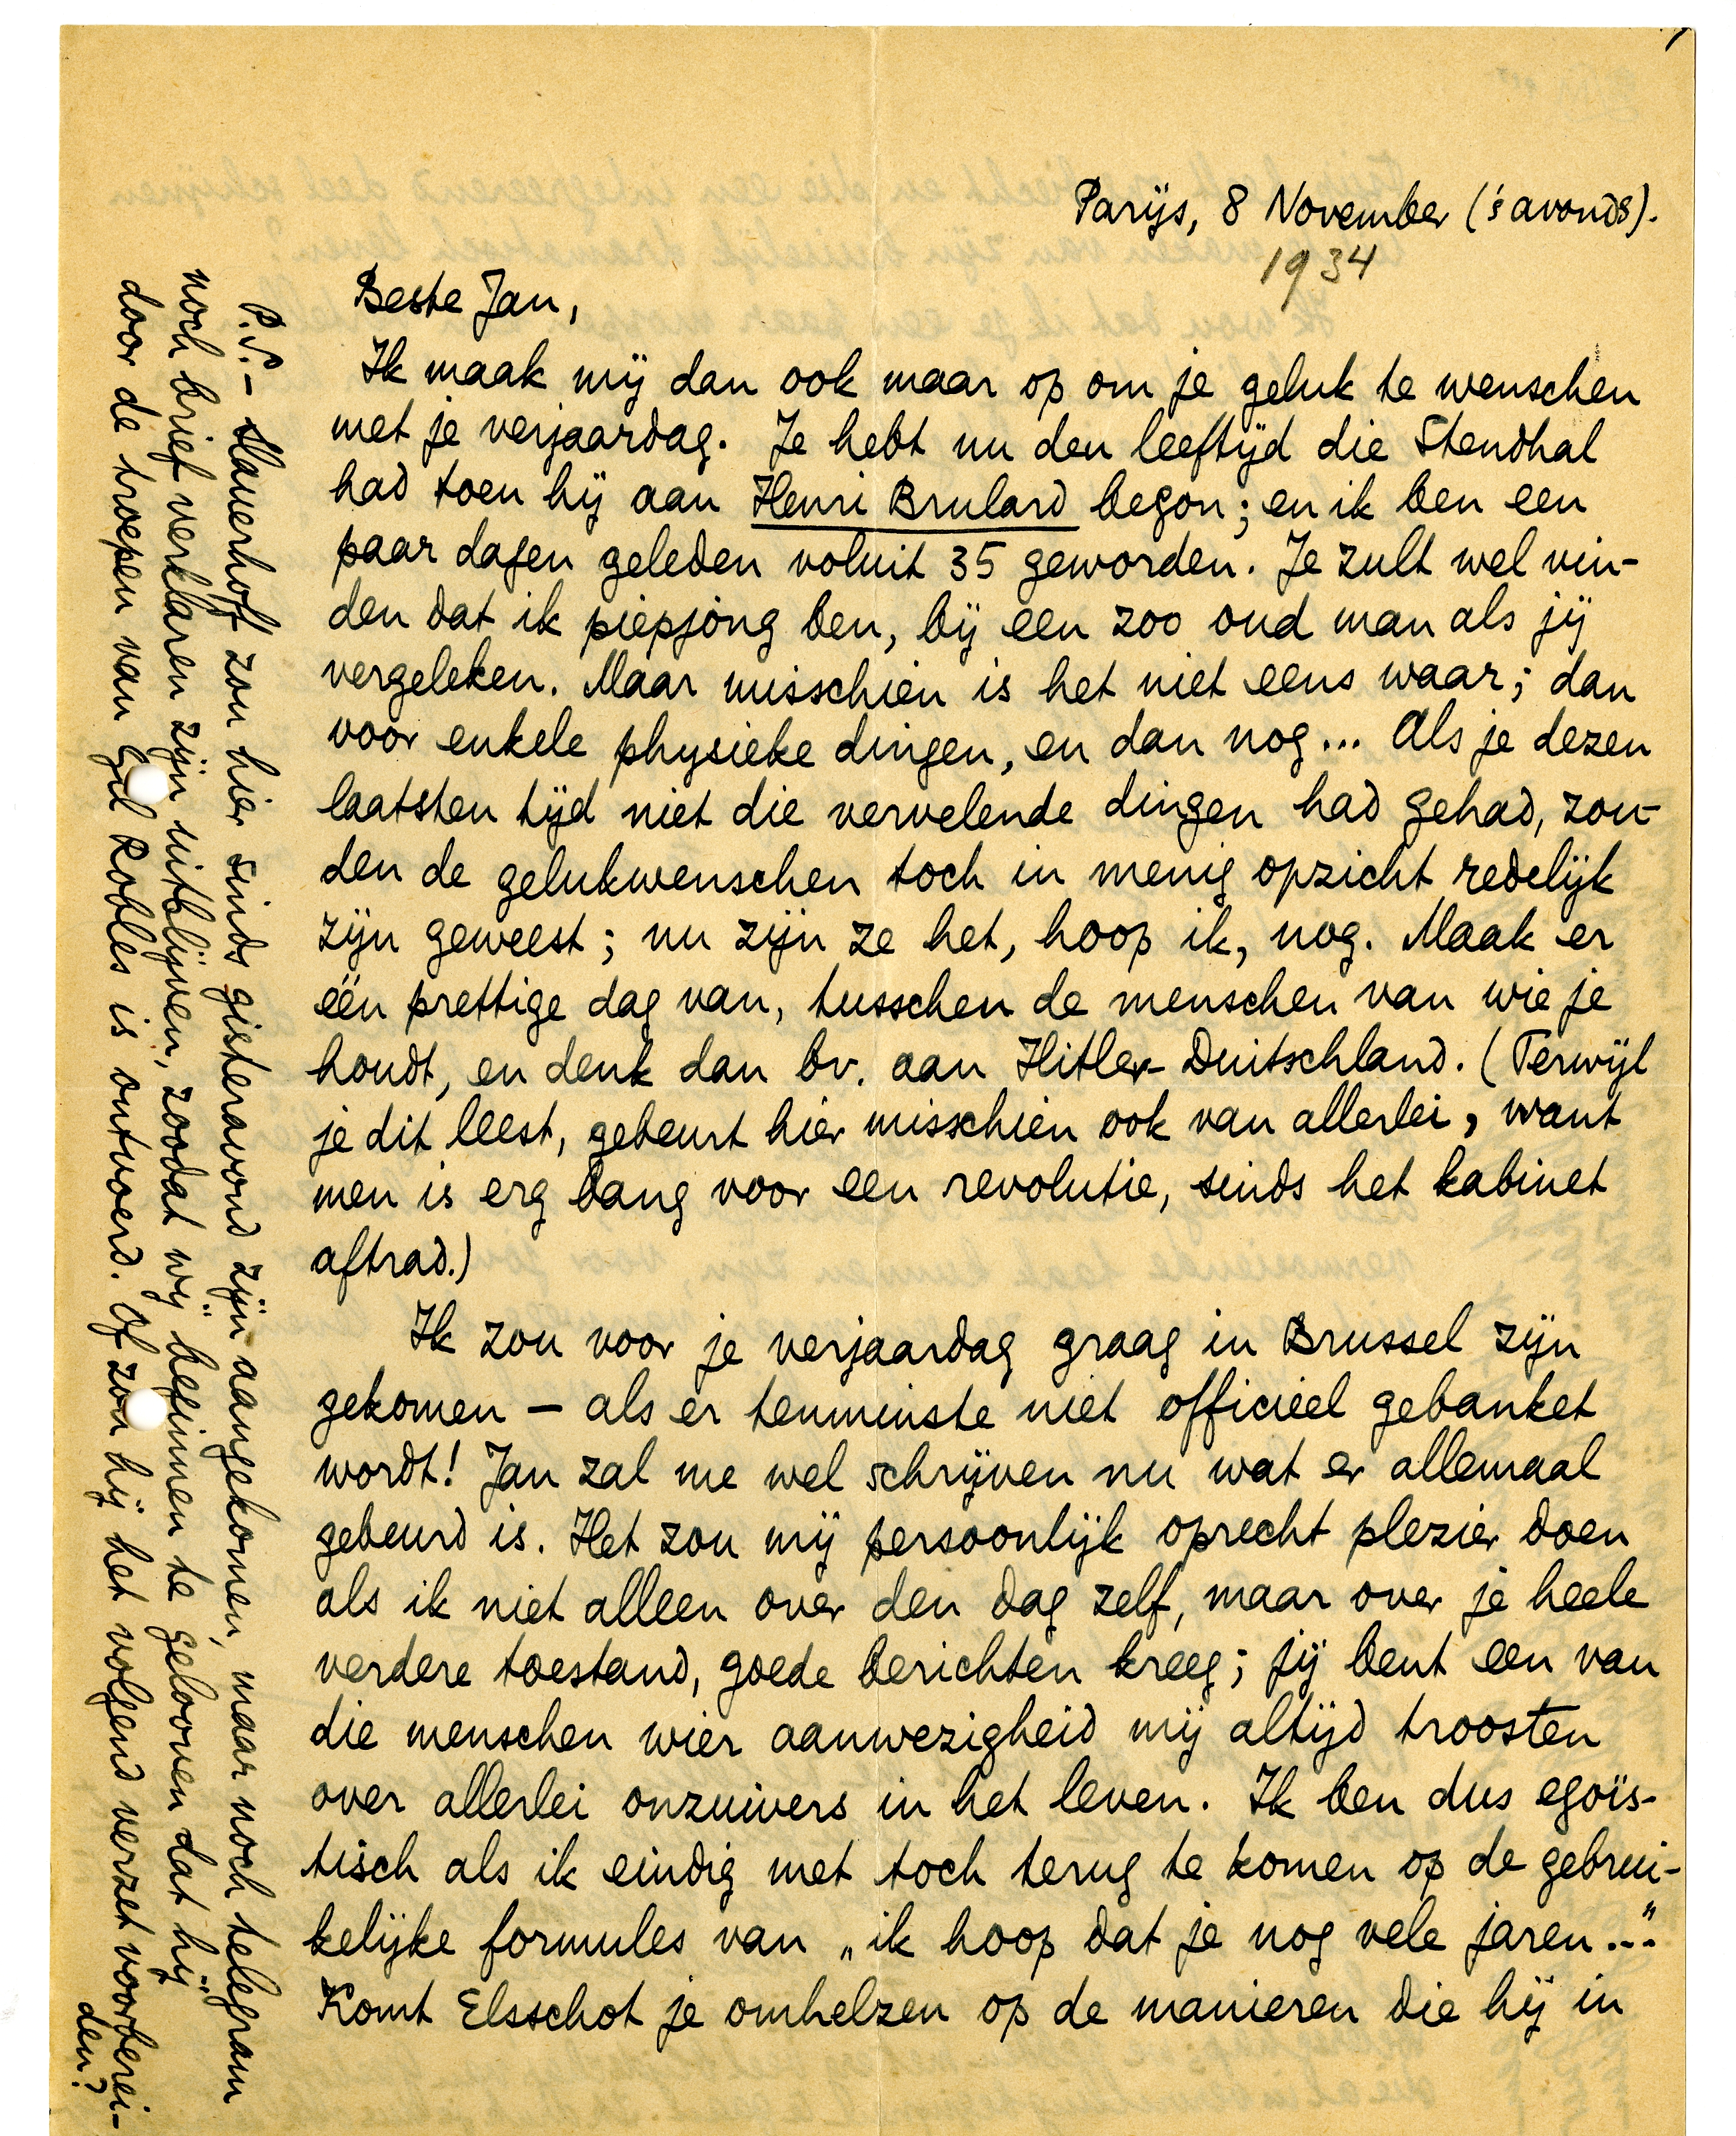 Parijs, 8 November ('s avonds).
1934
Beste Jan,
Ik maak mij dan ook maar op om je geluk te wenschen
met je verjaardag. Je hebt nu den leeftijd die Stendhal
had toen hij aan Henri Brulard begon; en ik ben een
paar dagen geleden voluit 35 geworden. Je zult wel vin-
den dat ik piepjong ben, bij een zoo oud man als jij
vergeleken. Maar misschien is het niet eens waar; dan
voor enkele physieke dingen, en dan nog... Als je dezen
laatsten tijd niet die vervelende dingen had gehad, zou-
den de gelukwenschen toch in menig opzicht redelijk
zijn geweest; nu zijn ze het, hoop ik, nog. Maak er
één prettige dag van, tusschen de menschen van wie je
houdt, en denk dan bv. aan Hitler-Duitschland. (Terwijl
je dit leest, gebeurt hier misschien ook van allerlei, want
men is erg bang voor een revolutie, sinds het kabinet
aftrad.)
Ik zou voor je verjaardag graag in Brussel zijn
gekomen – als er tenminste niet officieel gebanket
wordt! Jan zal me wel schrijven nu wat er allemaal
gebeurd is. Het zou mij persoonlijk oprecht plezier doen
als ik niet alleen over den dag zelf, maar over je heele
verdere toestand, goede berichten kreeg; jij bent een van
die menschen wier aanwezigheid mij altijd troosten
over allerlei onzuivers in het leven. Ik ben dus egoïs-
tisch als ik eindig met toch terug te komen op de gebrui-
kelijke formules van „ik hoop dat je nog vele jaren..."
Komt Elsschot je omhelzen op de manieren die hij in
P.S. – Slauerhoff zou hier sinds gisteravond zijn aangekomen, maar noch telegram
noch brief verklaren zijn uitblijven, zoodat wij beginnen te gelooven dat hij
door de troepen van Gil Robles is ontvoerd. Of zou hij het volgend verzet voorberei-
den?